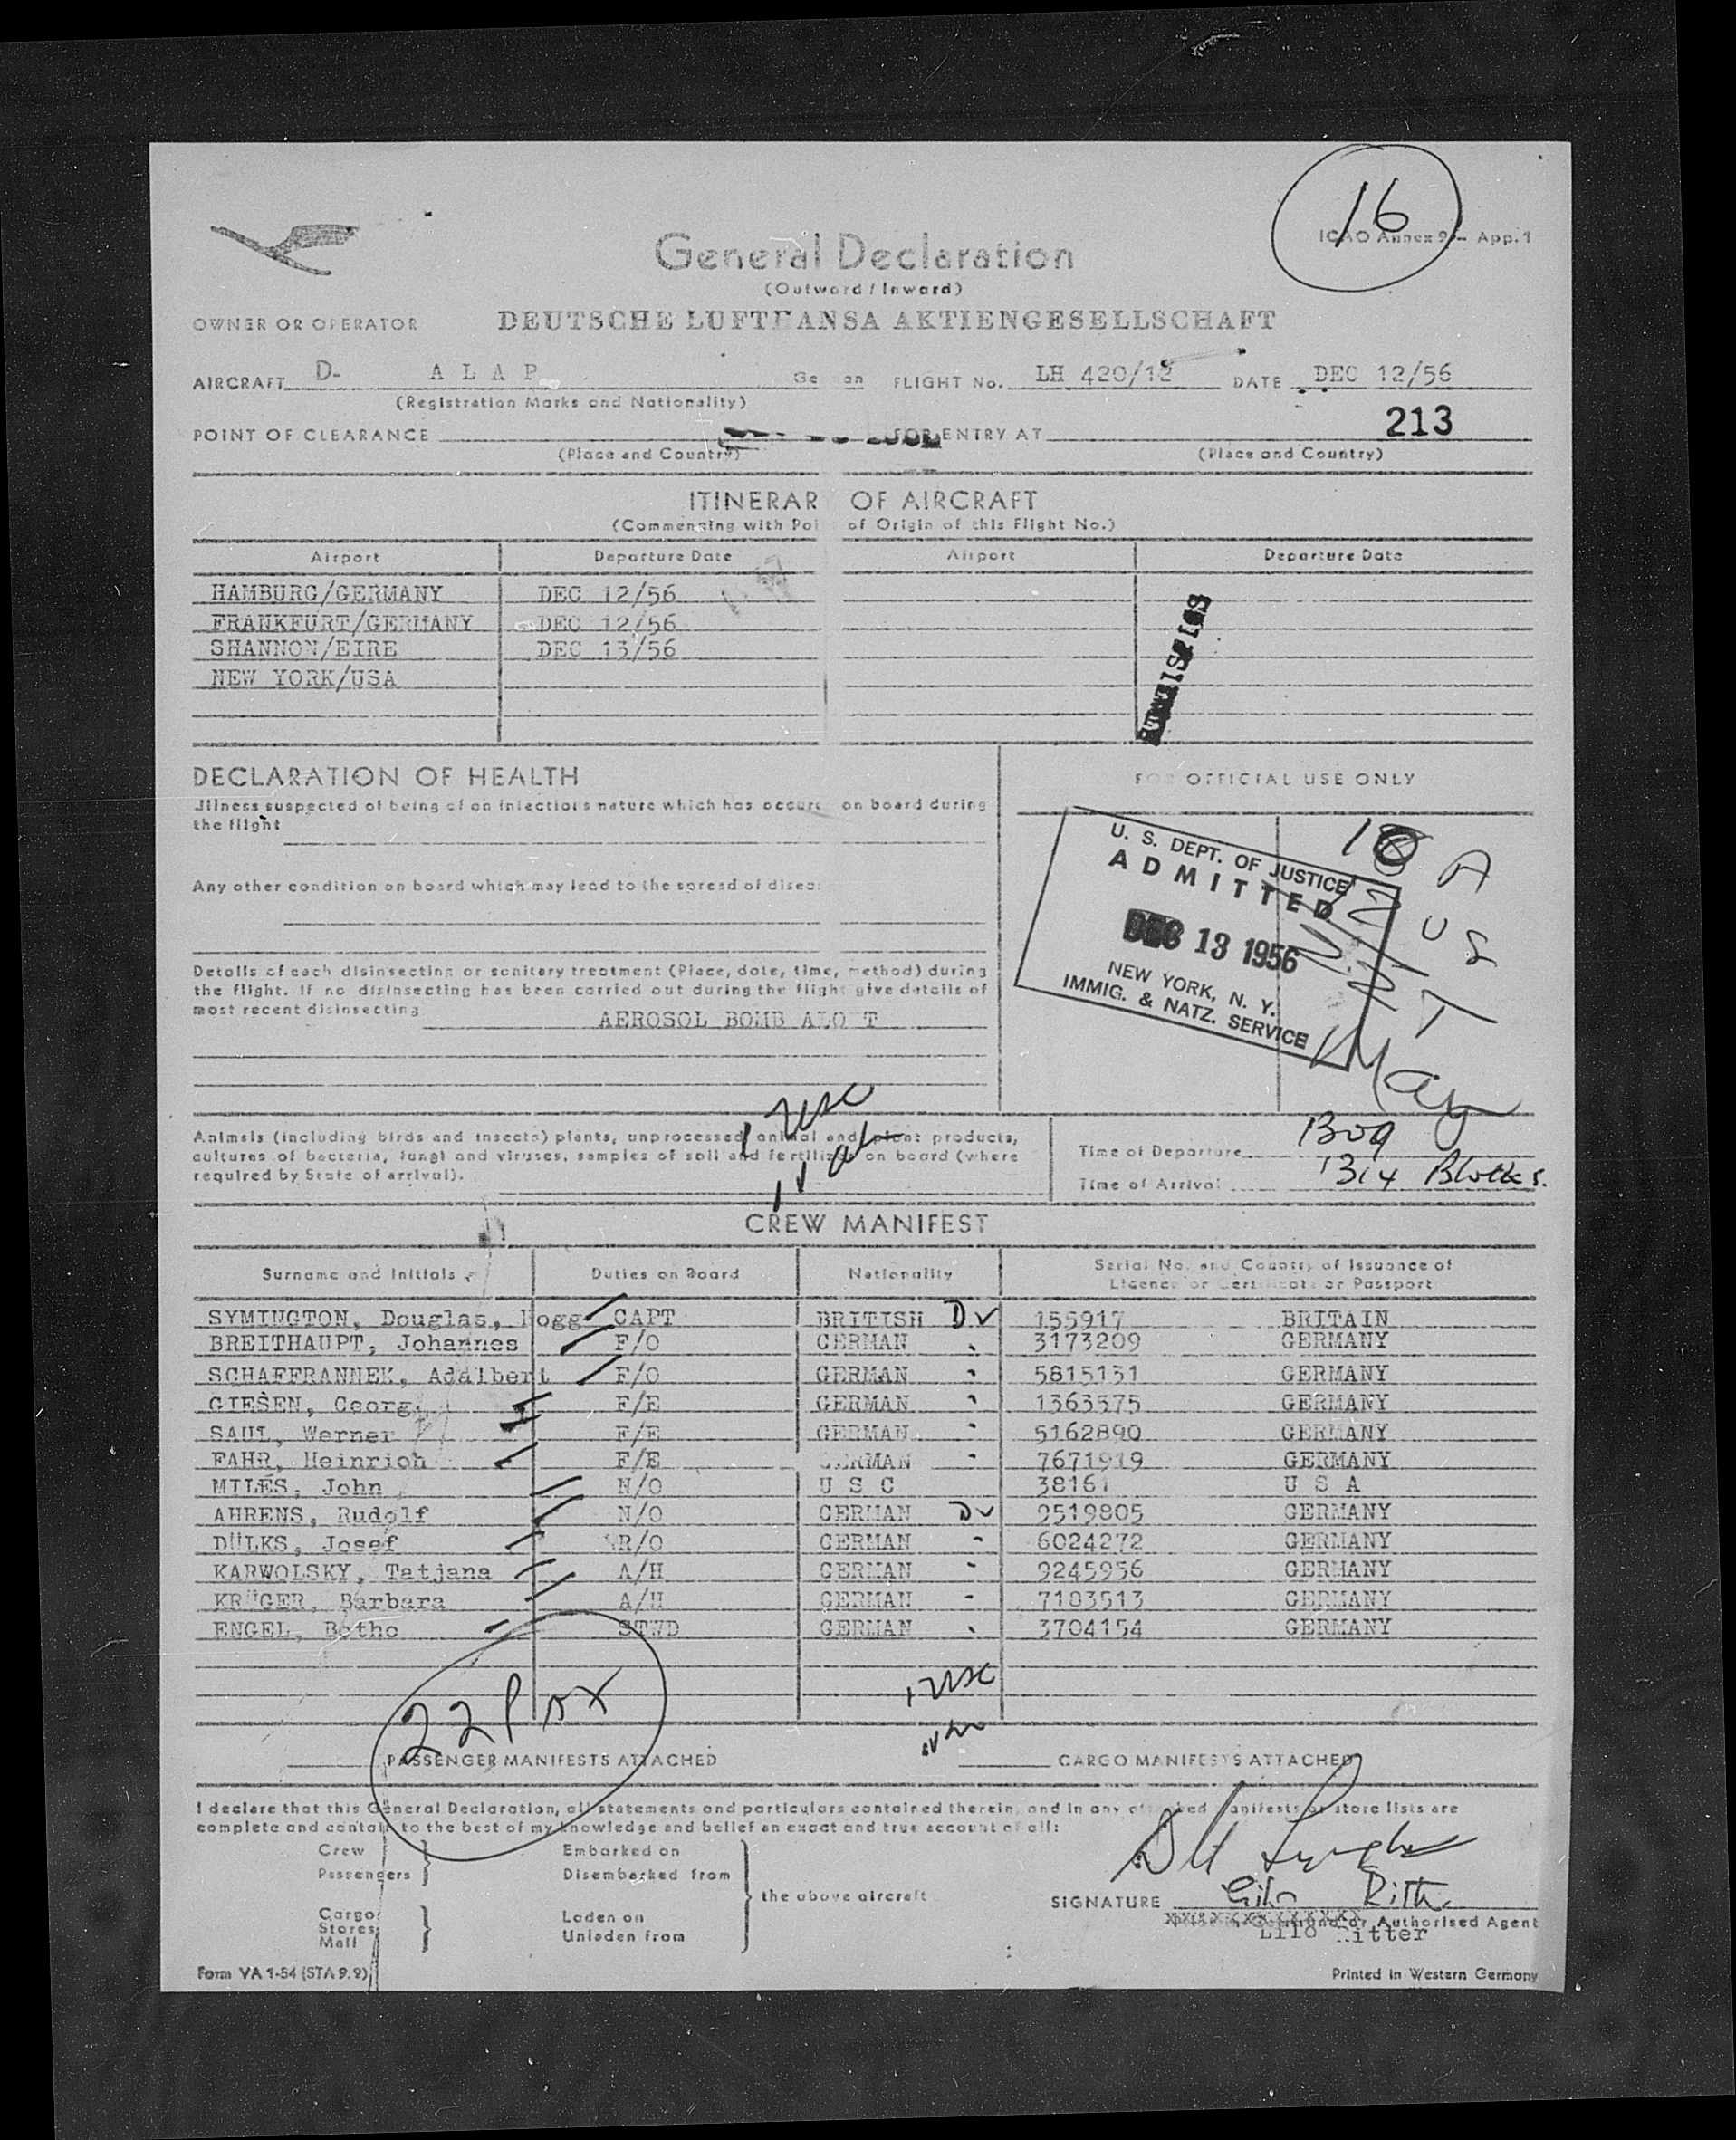 16
ICAO Annex 9 - App. 1
General Declaration
(Outward / Inward)
OWNER OR OPERATOR DEUTSCHE LUFTHANSA AKTIENGESELLSCHAFT
AIRCRAFT D- A L A P German FLIGHT No. LH 420/12 DATE DEC 12/56
(Registration Marks and Nationality)
213
POINT OF CLEARANCE FOR ENTRY AT
(Place and Country) (Place and Country)
ITINERAR OF AIRCRAFT
(Commencing with Poi of Origin of this Flight No.)
Airport Departure Date Airport Departure Date
HAMBURG/GERMANY DEC 12/56
FRANKFURT/GERMANY DEC 12/56
SHANNON/EIRE DEC 13/56
NEW YORK/USA
DECLARATION OF HEALTH
FOR OFFICIAL USE ONLY
Illness suspected of being of an infectious nature which has occure on board during
the flight
Any other condition on board which may lead to the spread of disea
Details of each disinsecting or sanitary treatment (Place, date, time, method) during
the flight. If no disinsecting has been carried out during the flight give details of
most recent disinsecting AEROSOL BOMB ALO T
U. S. DEPT. OF JUSTICE
ADMITTED
DEC 13 1956
NEW YORK, N. Y.
IMMIG. & NATZ. SERVICE
1 usc
Animals (including birds and insects) plants, unprocessed animal and plant products,
cultures of bacteria, fungi and viruses, samples of soil and fertilizer on board (where
required by State of arrival).
Time of Departure 1309
Time of Arrival 1314 Blocks.
CREW MANIFEST
Surname and Initials Duties on Board Nationality Serial No. and Country of Issuance of
Licence or Certificate or Passport
SYMINGTON, Douglas, Hogg CAPT BRITISH D 155917 BRITAIN
BREITHAUPT, Johannes F/O GERMAN 3173209 GERMANY
SCHAFFRANNEK, Adalbert F/O GERMAN 5815131 GERMANY
GIESEN, Georg F/E GERMAN 1363575 GERMANY
SAUL, Werner F/E GERMAN 5162890 GERMANY
FAHR, Heinrich F/E GERMAN 7671919 GERMANY
MILES, John N/O U S C 38161 U S A
AHRENS, Rudolf N/O GERMAN D 9519805 GERMANY
DÜLKS, Josef R/O GERMAN 6024272 GERMANY
KARWOLSKY, Tatjana A/H GERMAN 9245956 GERMANY
KRÜGER, Barbara A/H GERMAN 7103513 GERMANY
ENGEL, Botho STWD GERMAN 3704154 GERMANY
22 Pax
1 usc
PASSENGER MANIFESTS ATTACHED CARGO MANIFESTS ATTACHED
I declare that this General Declaration, all statements and particulars contained therein, and in any attached manifests or store lists are
complete and contain to the best of my knowledge and belief an exact and true account of all:
Crew
Passengers
Embarked on
Disembarked from
the above aircraft
Cargo
Stores
Mail
Laden on
Unladen from
SIGNATURE
or Authorised Agent
Lilo Ritter
Form VA 1-54 (STA 9.9)
Printed in Western Germany